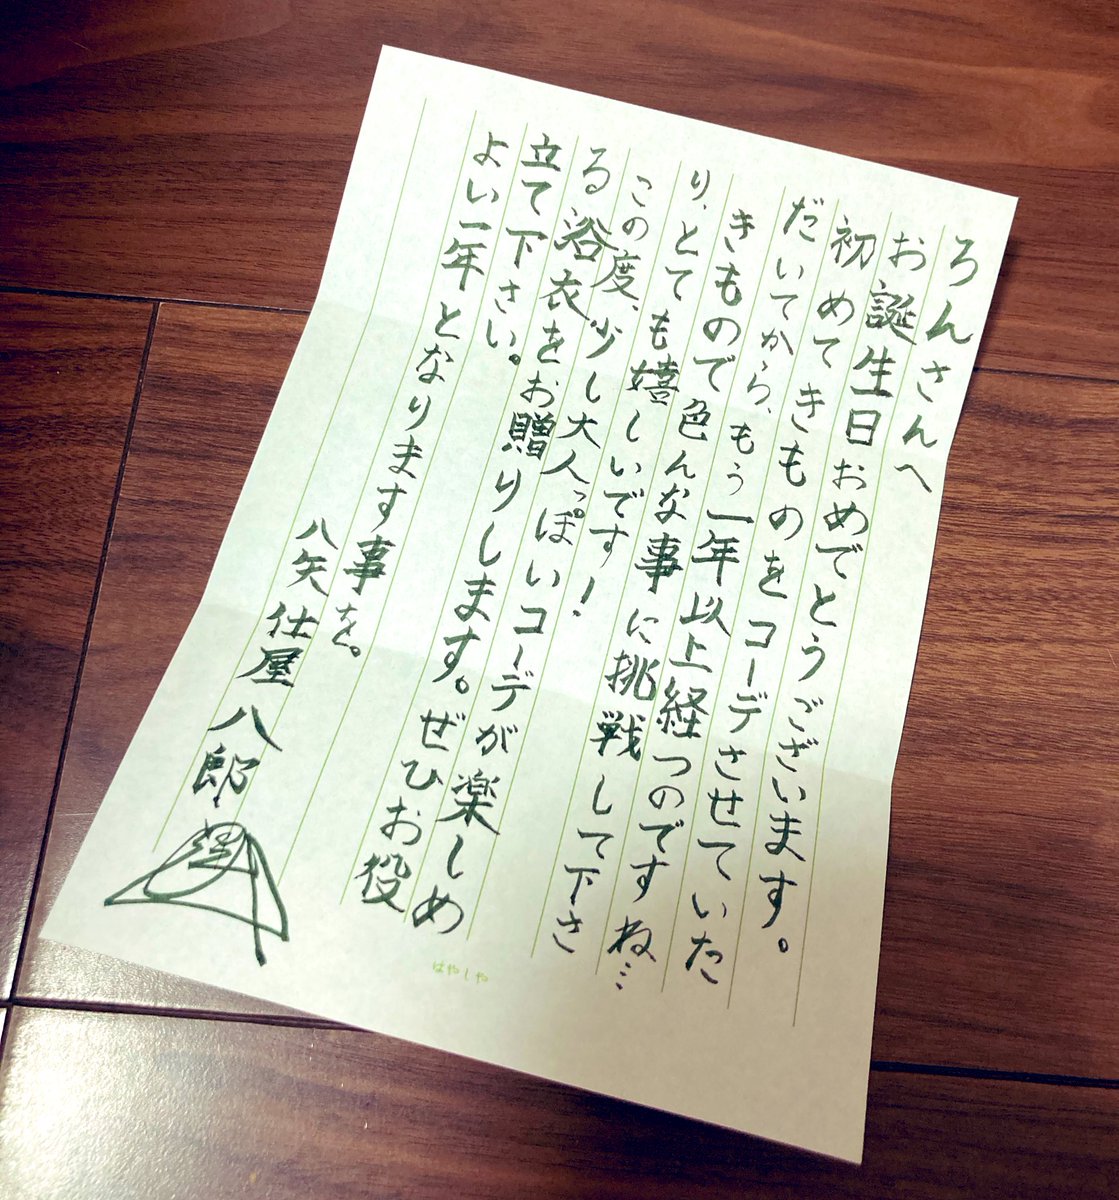 ろんさんへ
お誕生日おめでとうございます。
初めてきものをコーデさせていた
だいてから、もう一年以上経つのですね…
きもので色んな事に挑戦して下さ
り、とても嬉しいです!
この度、少し大人っぽいコーデが楽しめ
る浴衣をお贈りします。ぜひお役
立て下さい。
よい一年となります事を。
八矢仕屋 八郎
はやしや